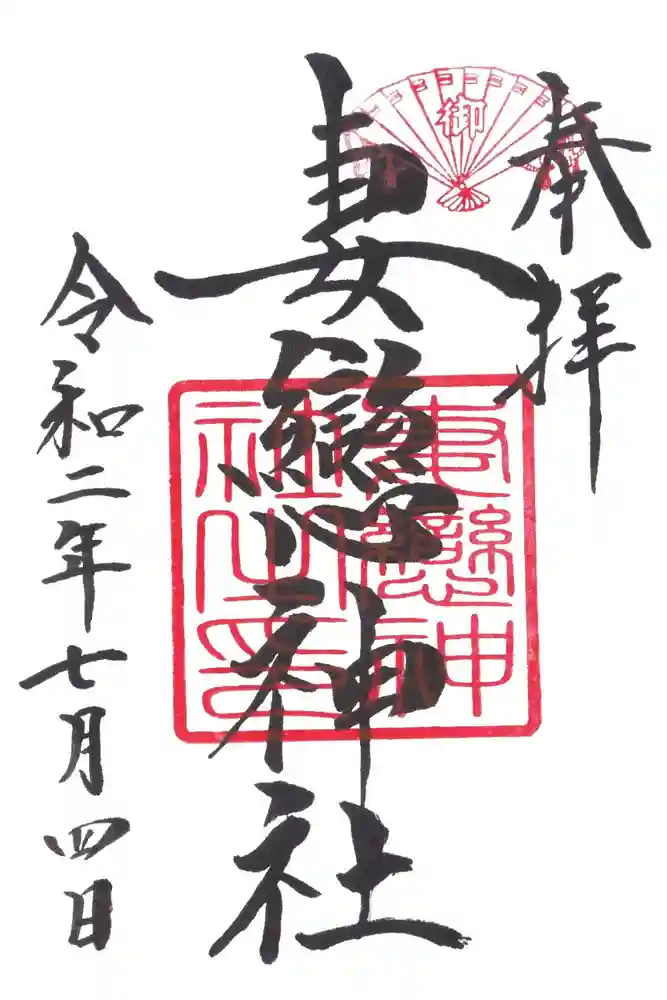 奉拝
御
妻戀神社
妻戀神
社之印
令和二年七月四日